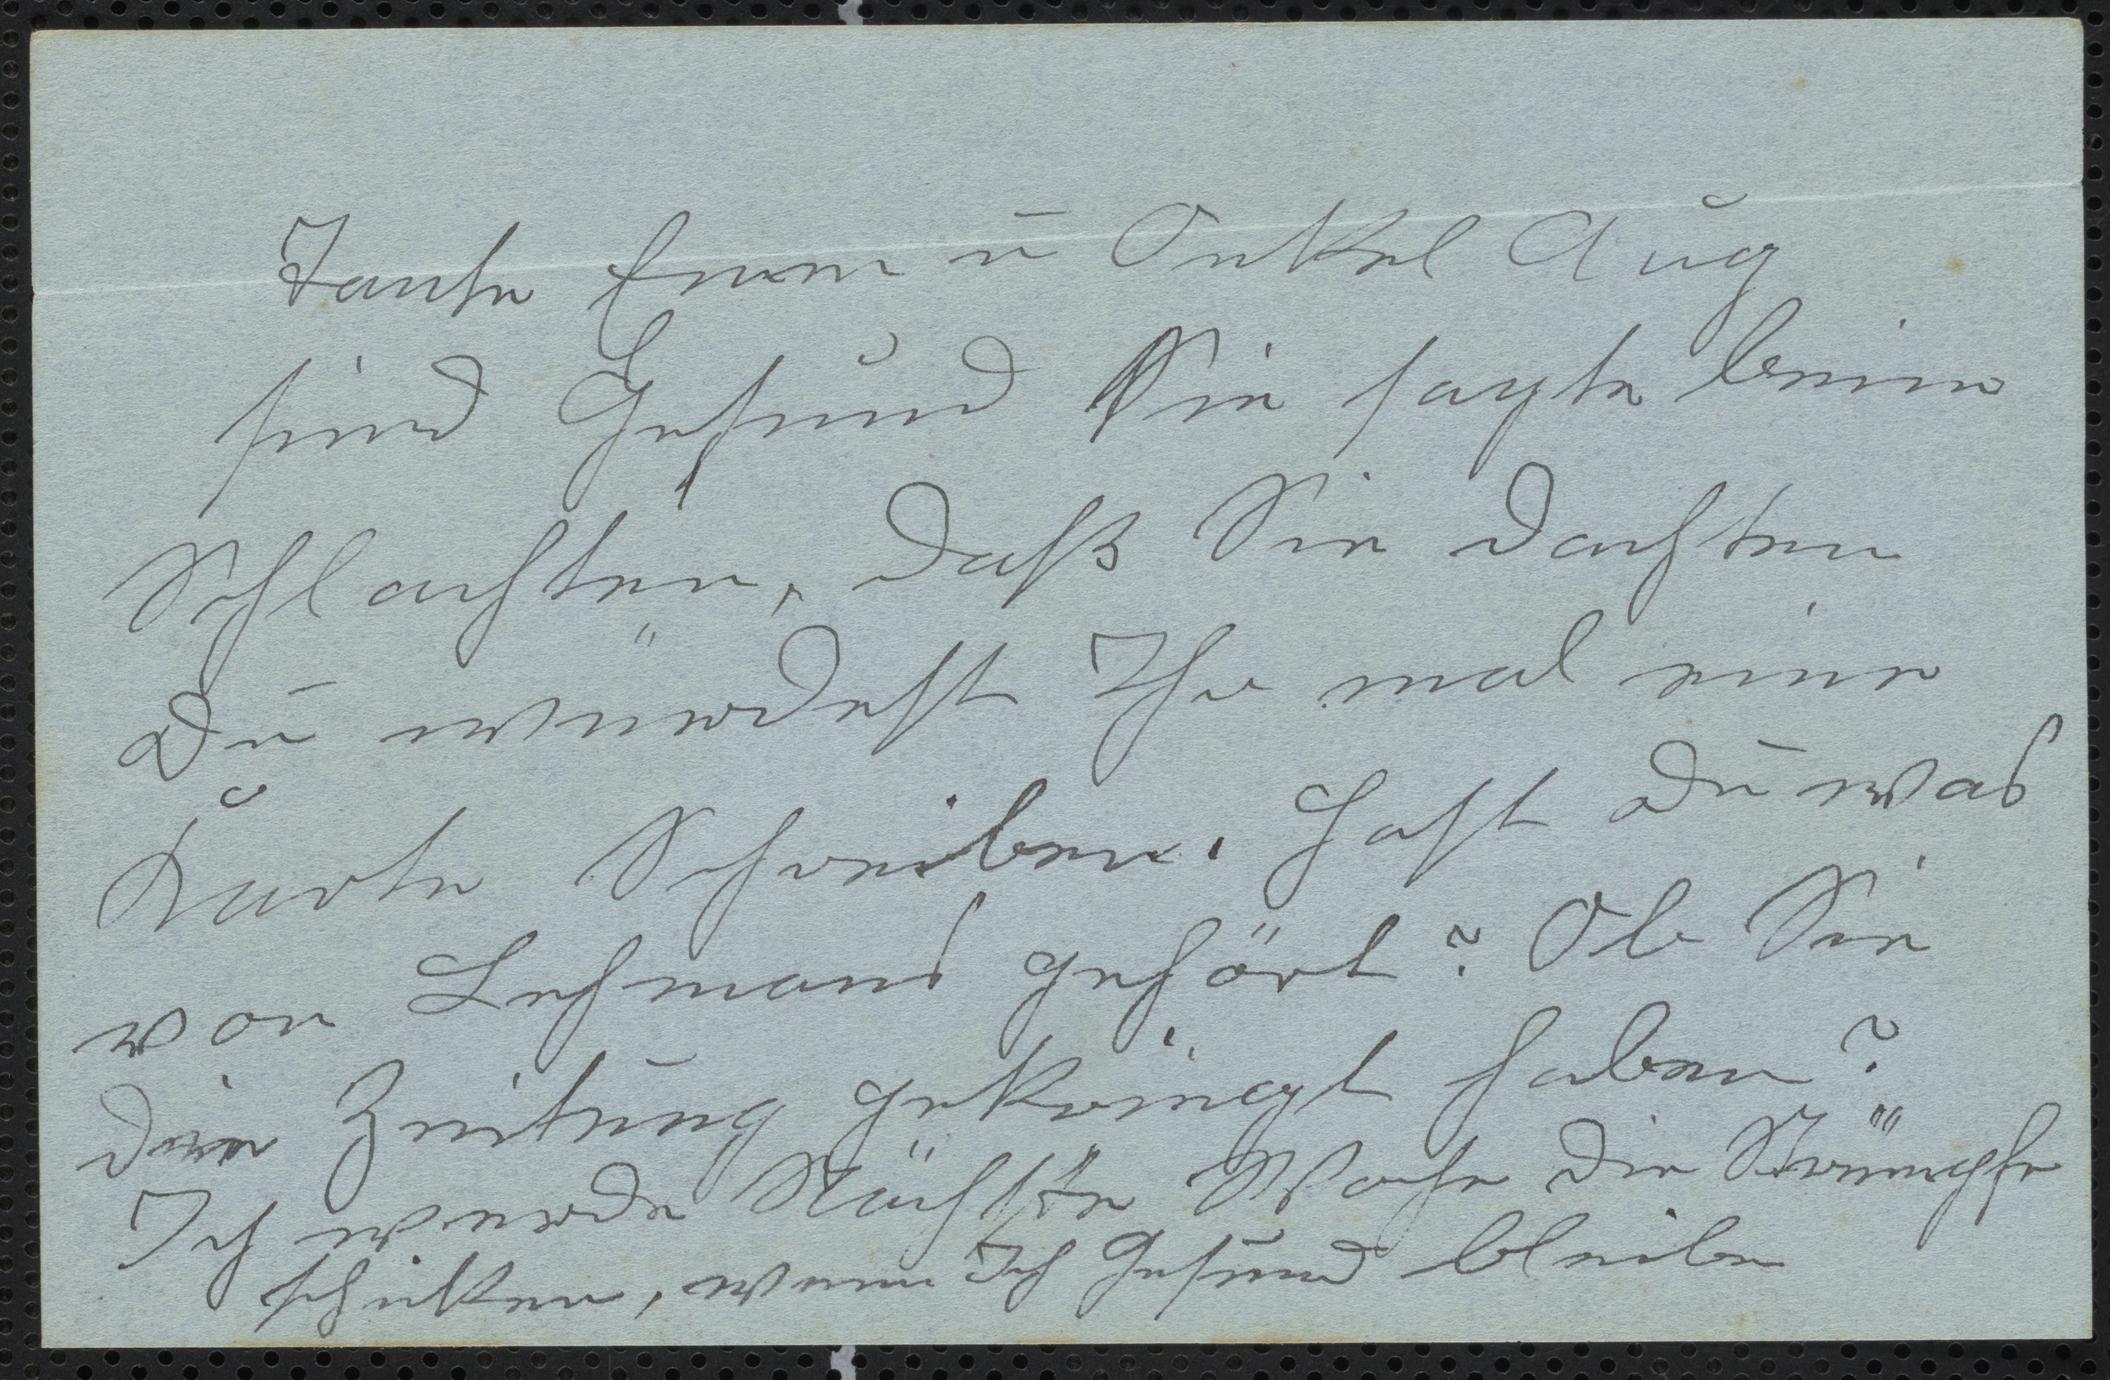 Tante Emm u Onkel Aug
sind Gesund Sie sagte beim
Schlachten, daß Sie dachten
Du würdest Ihr mal eine
Karte Schreiben. Hast Du was
von Lehmans gehört? Ob Sie
die Zeitung gekriegt haben?
Ich werde Nächste Woche die Strümpfe
schicken, wenn Ich Gesund bleibe